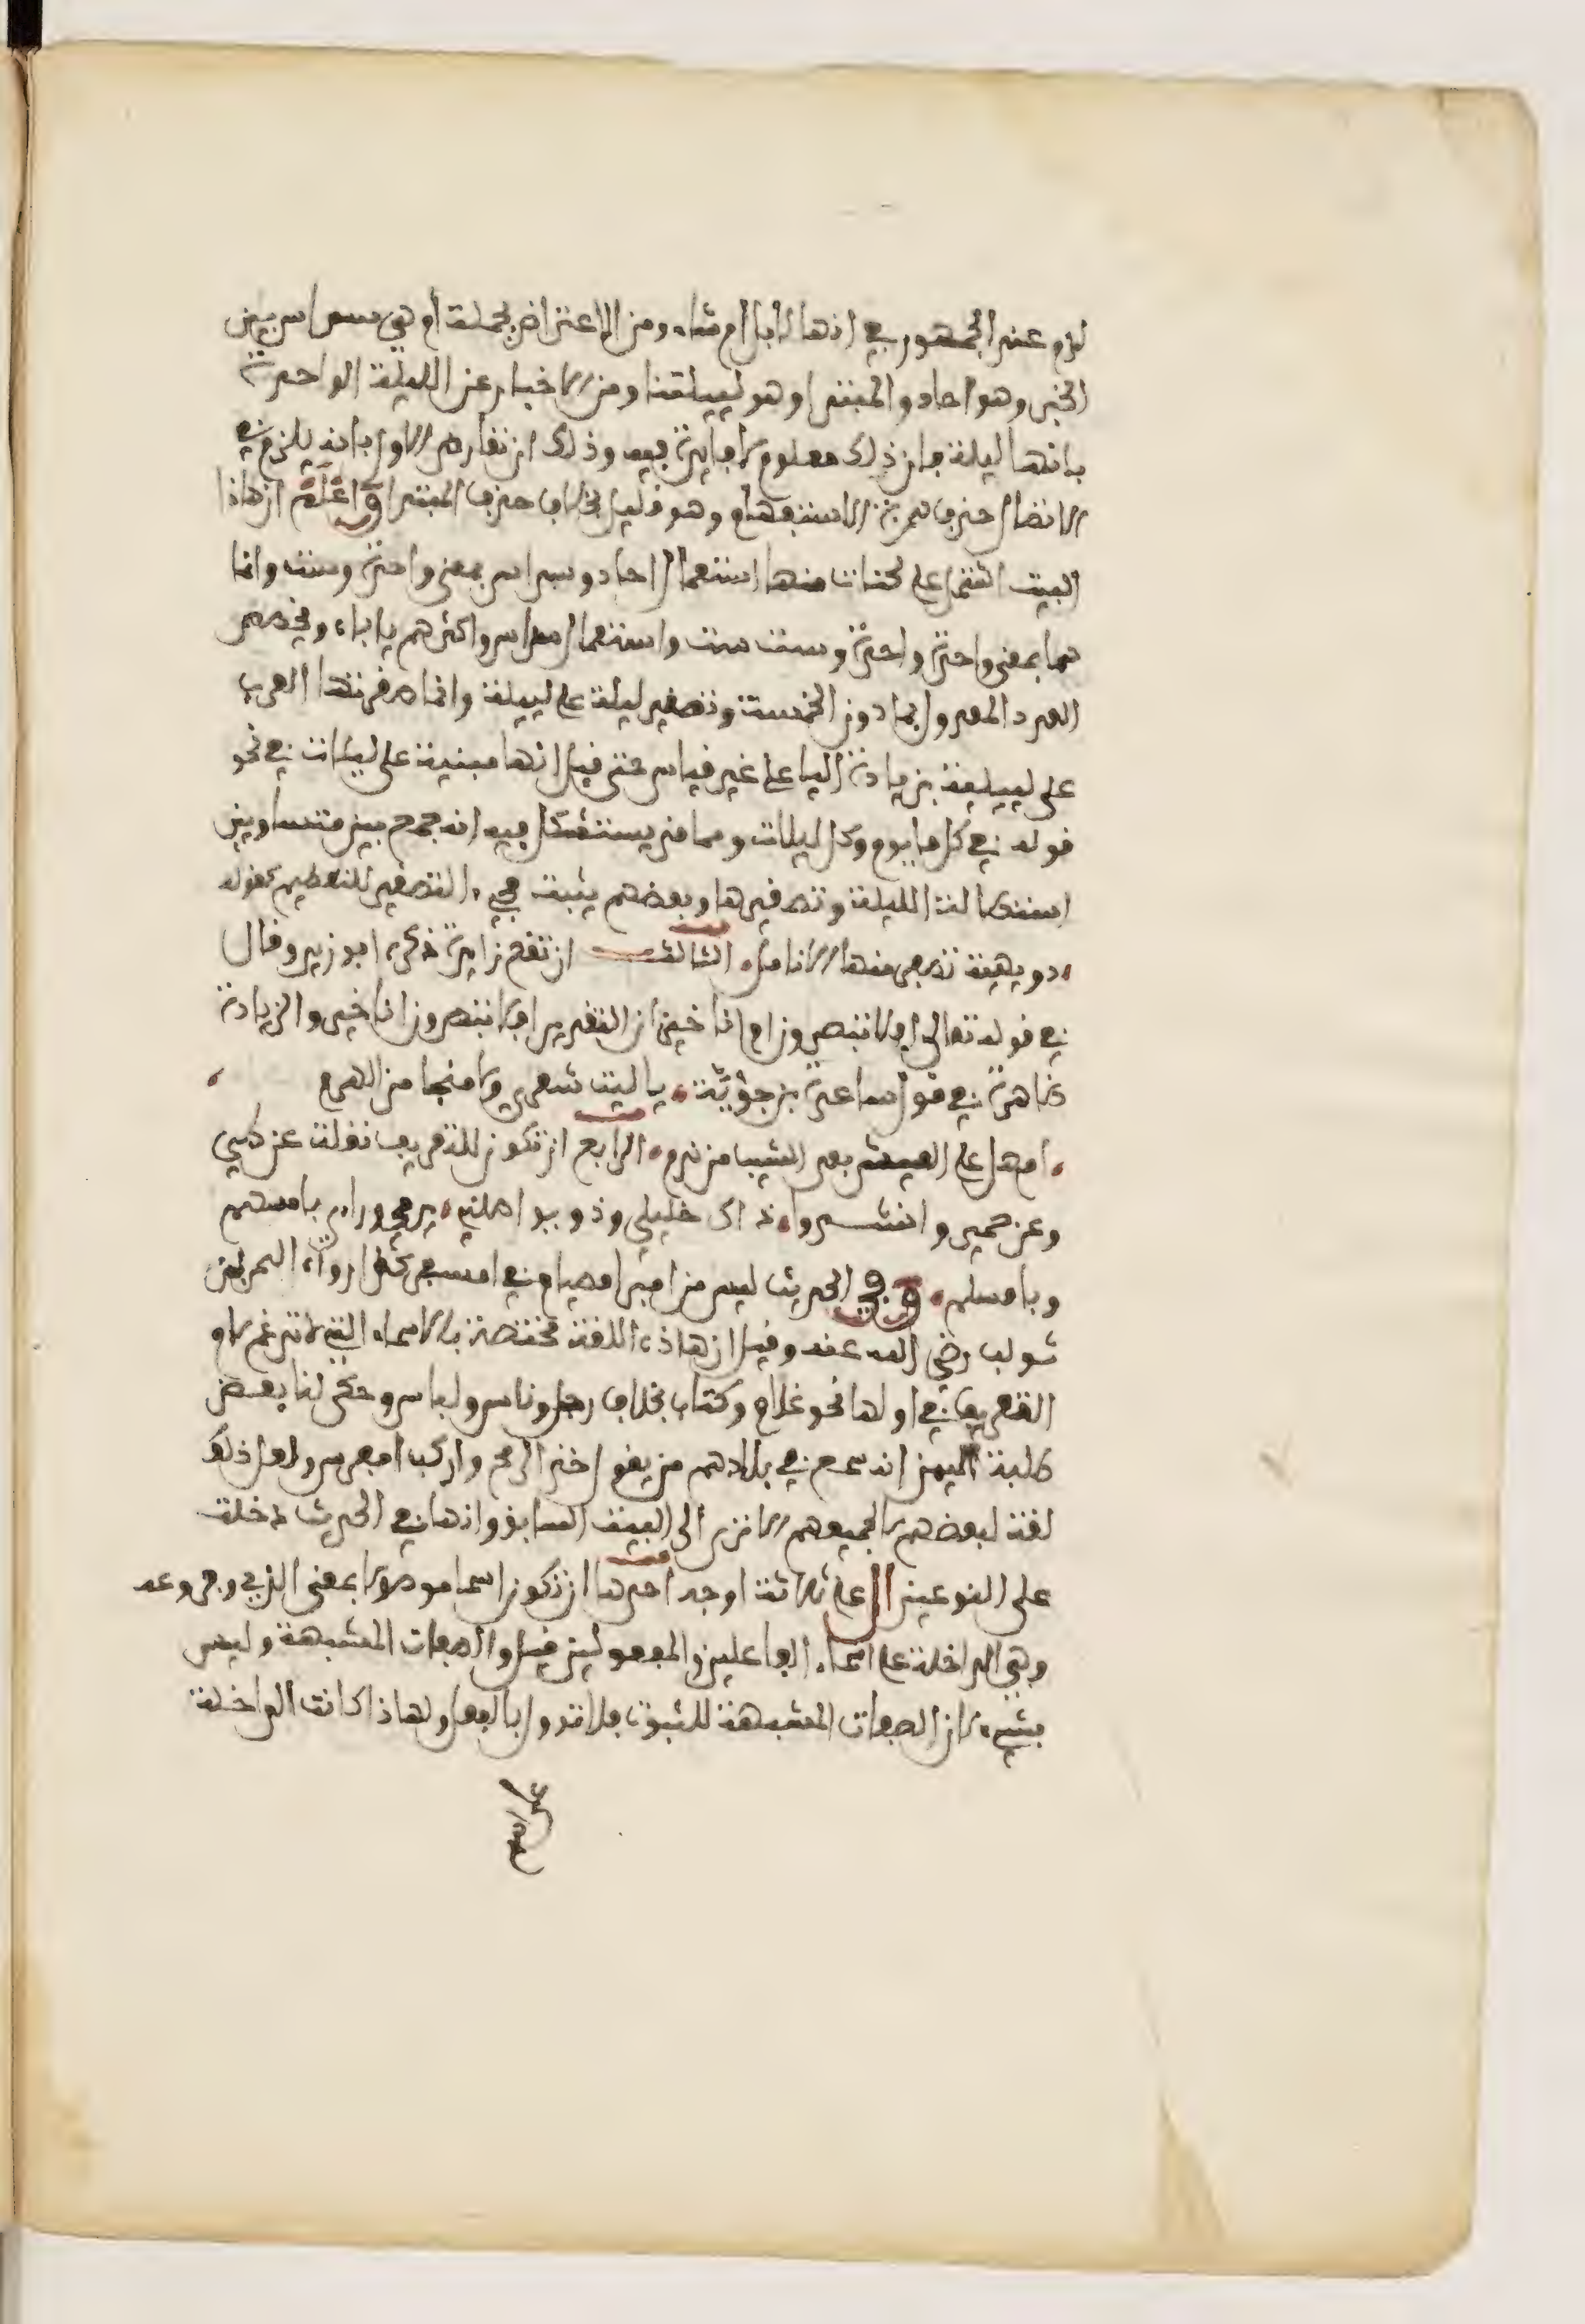 لازم عند الجمهور في انها لابل ام شاء ومن الاعتراض بجملة ام هي سداس بين
الخبر وهو احاد والمبتدا وهو لييلتنا ومن الاخبار عن الليلة الواحدة
بانها ليلة فان ذلك معلوم لا فايدة فيه وذلك ان تعارض الاول بانه يلزم في
الاتصال حذف همزة الاستفهام وهو قليل بخلاف حذف المبتدا واعلم ان هاذا
البيت اشتمل على لحنات منها استعمال احاد وسداس بمعنى واحدة وست وانما
هما بمعنى واحدة واحدة وست ست واستعمال سداس واكثرهم ياباه ويخص
العدد المعدول بما دون الخمسة وتصغير ليلة على لييلة وانما صغرتها العرب
على لييلية بزيادة اليا على غير قياس حتى قيل انها مبنية على ليلات في نحو
قوله في كل ما يوم وكل ليلات ومما قد يستشكل فيه انه جمع بين متنافيين
استطالة الليلة وتصغيرها وبعضهم يثبت مجيء التصغير للتعظيم كقوله
دويهية تصفر منها الانامل الثالث ان تقع زايدة ذكره ابو زيد وقال
في قوله تعالى افلا تبصرون ام انا خير ان التقدير افلا تبصرون انا خير والزيادة
ظاهرة في قول ساعدة بن جؤية يا ليت شعري ولا منجا من الهرم
ام هل على العيش بعد الشيب من ندم الرابع ان تكون للتعريف نقلت عن طيي
وعن حمير وانشدوا ذاك خليلي وذو يواصلني يرمي ورايي بامسهم
وبامسلمه وفي الحديث ليس من امبر امصيام في امسفر كذا رواه النمر بن
تولب رضي الله عنه وقيل ان هاذه اللغة مختصة بالاسماء التي لا تدغم لام
التعريف في اولها نحو غلام وكتاب بخلاف رجل وناس ولباس وحكى لنا بعض
طلبة اليمن انه سمع في بلادهم من يقول خذ الرمح واركب امفرس ولعل ذلك
لغة لبعضهم لا لجميعهم الا ترى الى البيت السابق وانها في الحديث دخلت
على النوعين ال على ثلاثة اوجه احدها ان تكون اسما موصولا بمعنى الذي وفروعه
وهي الداخلة على اسماء الفاعلين والمفعولين قيل والصفات المشبهة وليس
بشيء لان الصفات المشبهة للثبوت فلا تدول بالفعل ولهاذا كانت الداخلة
على